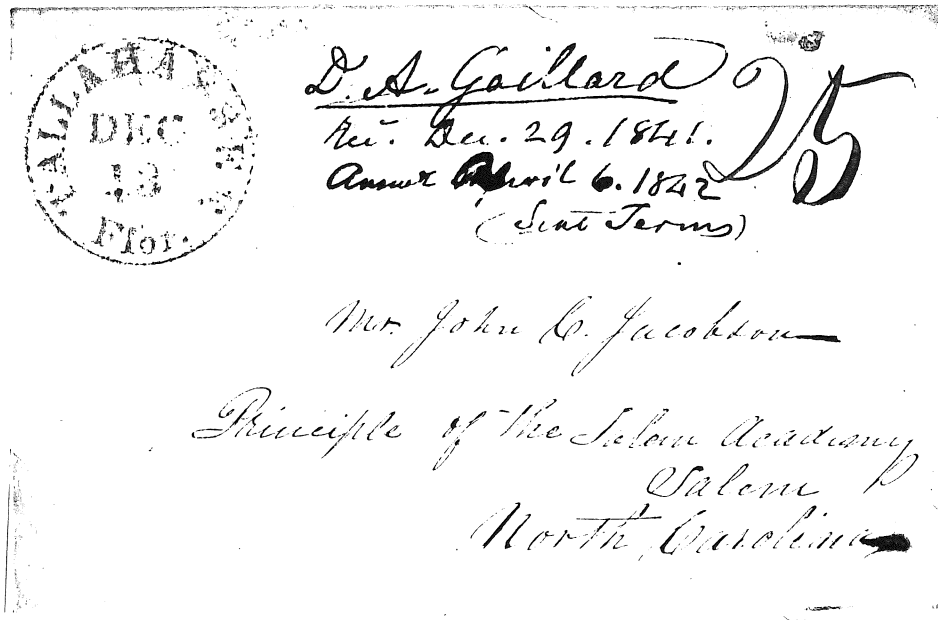 TALLAHASSEE
DEC
13
Flor.
25
D. A. Gaillard
Rec. Dec. 29. 1841.
Answd April 6. 1842
(Sent Terms)
Mr. John C. Jacobson
Principle of the Salem Academy
Salem
North Carolina